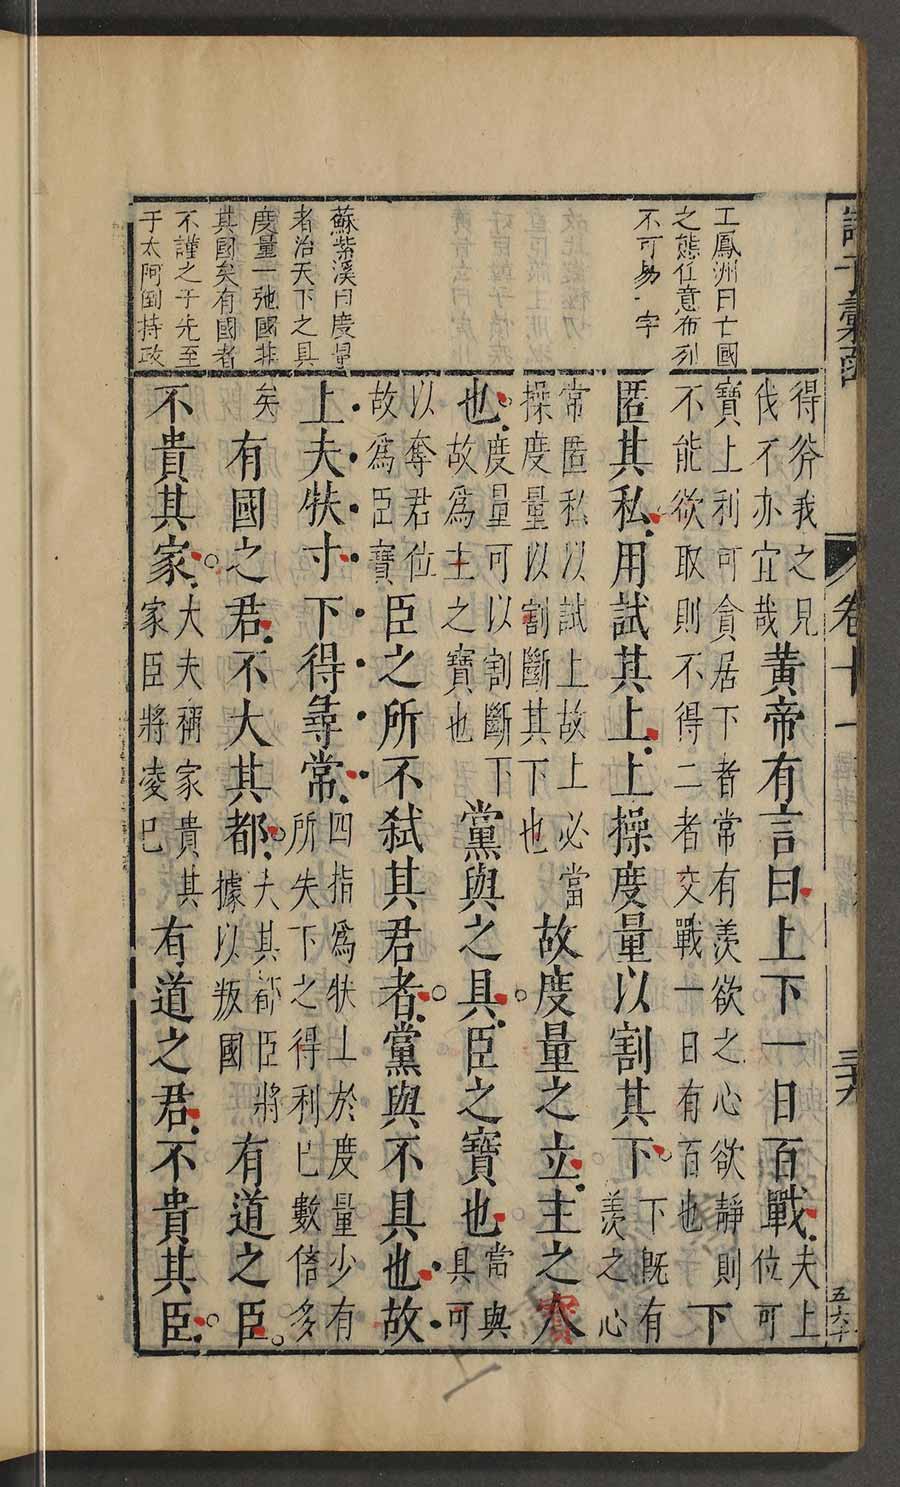 諸子彙函 卷十一
王鳳洲曰亡國
之態任意布列
不可易一字
蘇紫溪曰度量
者治天下之具
度量一弛國非
其國矣有國者
不謹之于先至
于太阿倒持政
得斧我之見伐不亦宜哉黃帝有言曰上下一日百戰夫上位可
寶上利可貪居下者常有羨欲之心欲靜則不能欲取則不得二者交戰一日有百也下
匿其私用試其上上操度量以割其下下既有羨之心
常匿私以試上故上必當操度量以割斷其下也故度量之立主之寶
也度量可以割斷下故為主之寶也黨與之具臣之寶也當與具可
以奪君位故為臣寶臣之所不弒其君者黨與不具也故
上夫扶寸下得尋常四指為扶上於度量少有所失下之得利已數倍多
矣有國之君不大其都大其都臣將據以叛國有道之臣
不貴其家大夫稱家貴其家臣將凌巳有道之君不貴其臣